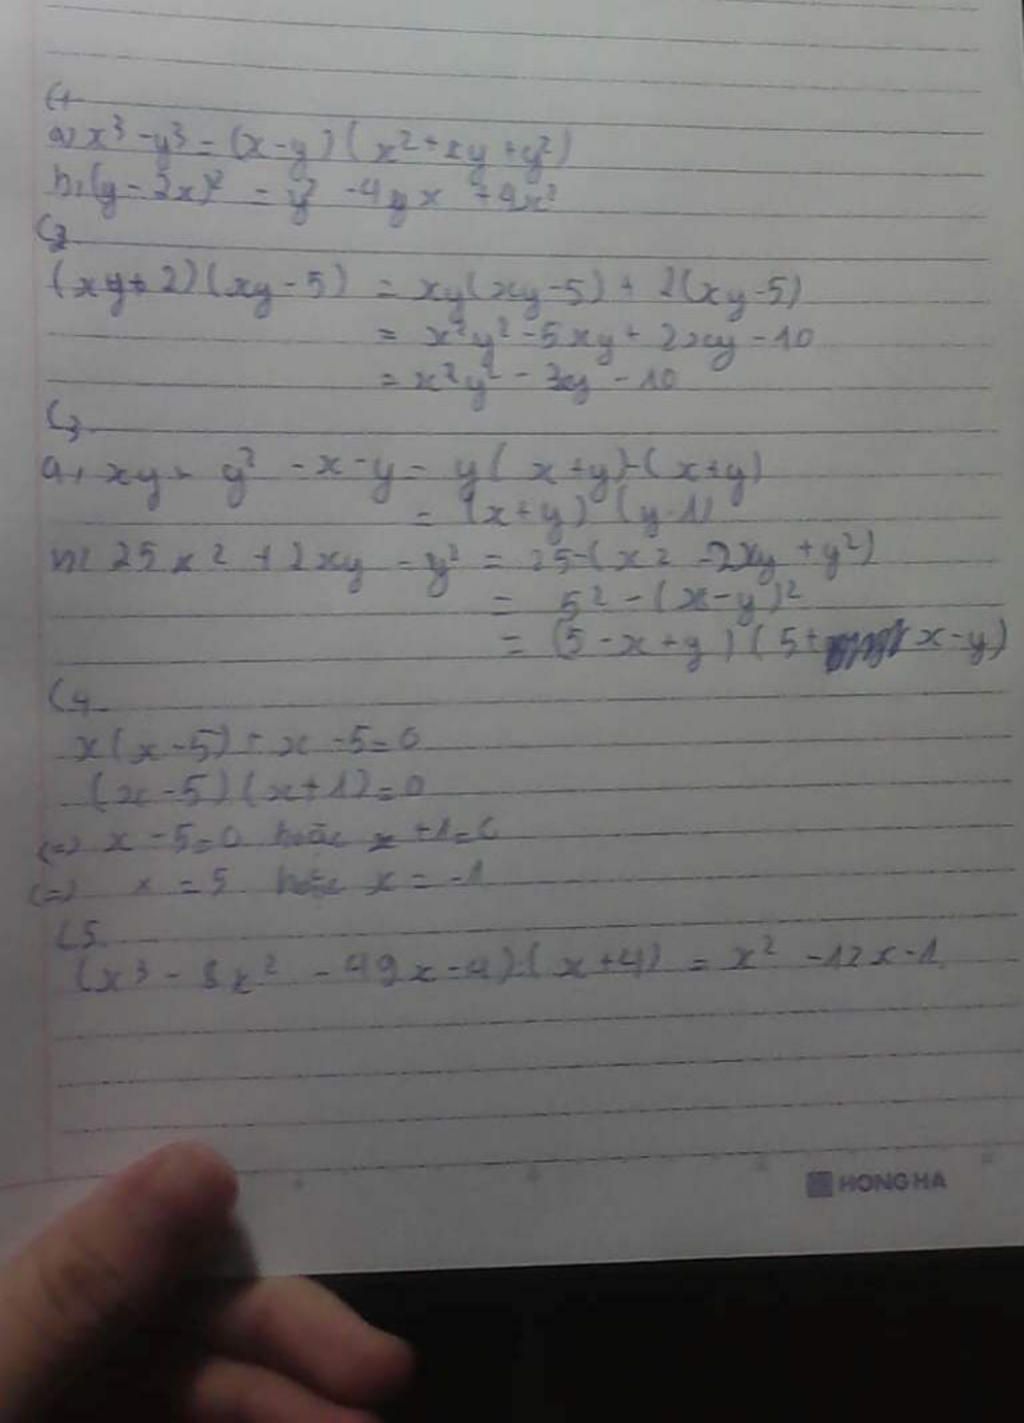 C1
a) x³ - y³ = (x-y)(x² + xy + y²)
b) (y - 2x)² = y² - 4yx + 4x²
C2
(xy + 2)(xy - 5) = xy(xy-5) + 2(xy-5)
= x²y² - 5xy + 2xy - 10
= x²y² - 3xy - 10
C3
a, xy + y² - x - y = y(x+y) - (x+y)
= (x+y)(y-1)
25 x² + 2xy - y² = 25 - (x² - 2xy + y²)
= 5² - (x-y)²
= (5 - x + y)(5 + x - y)
C4
x(x-5) + x - 5 = 0
(x-5)(x+1) = 0
<=> x - 5 = 0 hoặc x + 1 = 0
<=> x = 5 hoặc x = -1
C5
(x³ - 8x² - 49x - 4)(x+4) = x² - 12x - 1
HONG HA